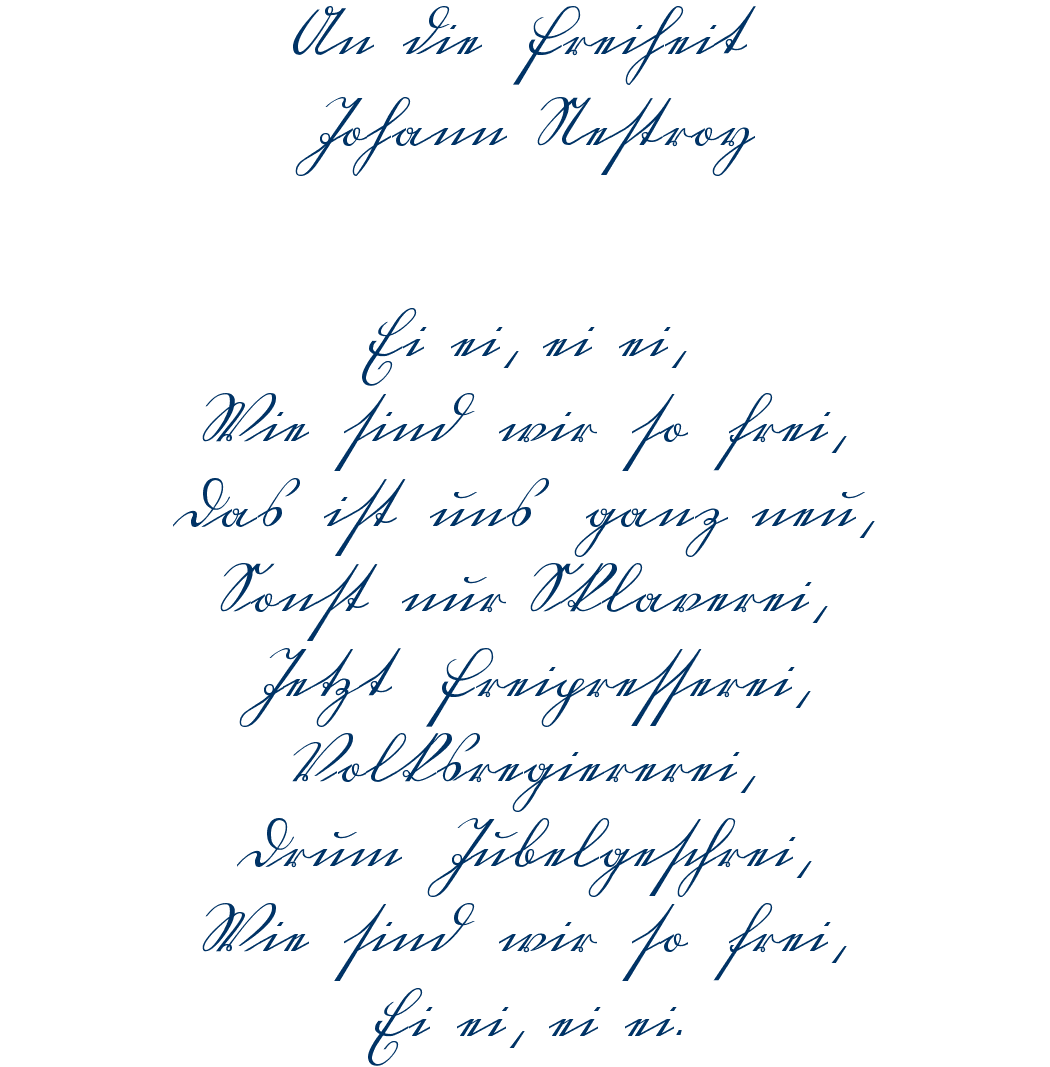 An die Freiheit
Johann Nestroy
Ei ei, ei ei,
Wie sind wir so frei,
Das ist uns ganz neu,
Sonst nur Sklaverei,
Jetzt Freipresserei,
Volksregiererei,
Drum Jubelgeschrei,
Wie sind wir so frei,
Ei ei, ei ei.